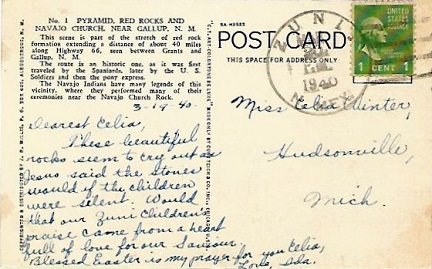 No. 1 PYRAMID, RED ROCKS AND
NAVAJO CHURCH, NEAR GALLUP, N. M.
This scene is part of the stretch of red rock
formation extending a distance of about 40 miles
along Highway 66, seen between Grants and
Gallup, N. M.
The route is an historic one, as it was first
traveled by the Spaniards, later by the U. S.
Soldiers and then the pony express.
The Navajo Indians have many legends of this
vicinity, where they performed many of their
ceremonies near the Navajo Church Rock.
3-19-40.
Dearest Celia,
These beautiful
rocks seem to cry out as
Jesus said the stones
would if the children
were silent. Would
that our Zuni Children's
praise came from a heart
full of love for our Saviour.
Blessed Easter is my prayer for you Celia,
Love, Ida.
POST CARD
THIS SPACE FOR ADDRESS ONLY
ZUNI
1940
N. MEX.
UNITED STATES
POSTAGE
1 CENT 1
Miss Celia Winter,
Hudsonville,
Mich.